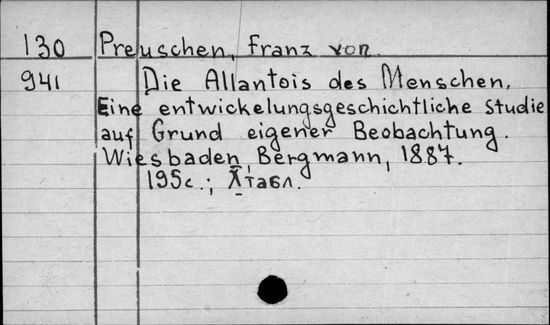 130 Preuschen, Franz von.
941 Die Allantois des Menschen.
Eine entwickelungsgeschichtliche Studie
auf Grund eigener Beobachtung.
Wiesbaden, Bergmann, 1887.
195с.; X табл.